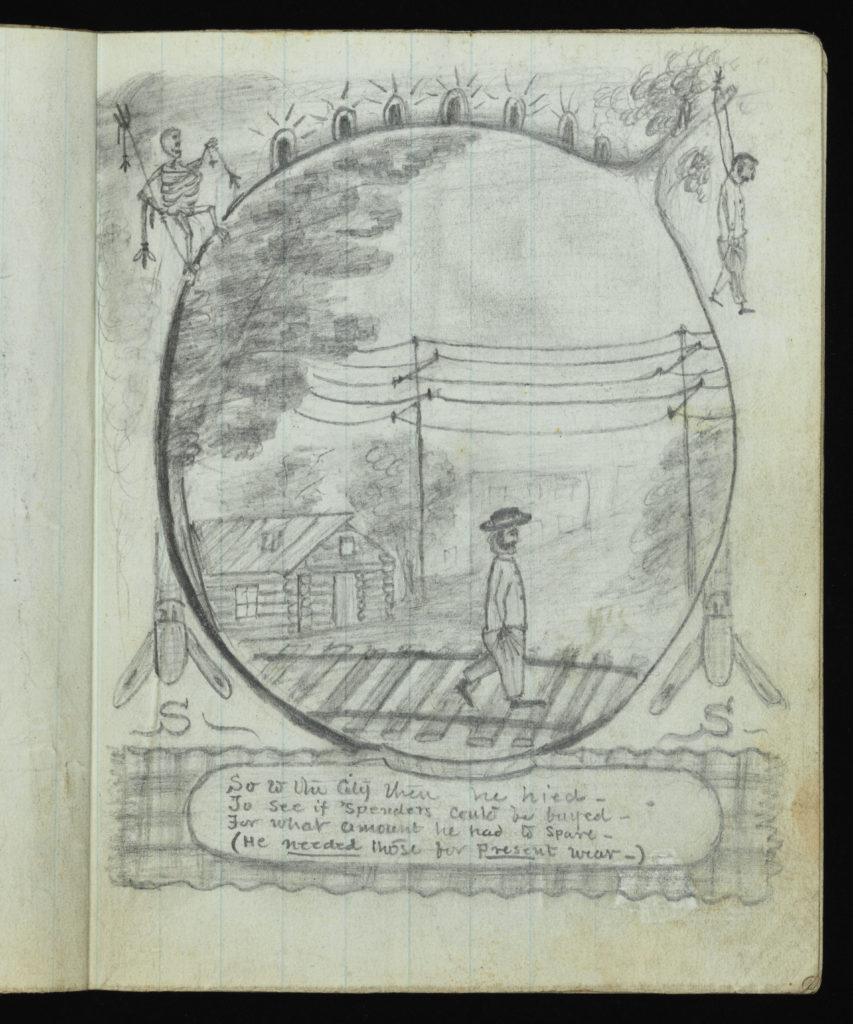 S S
So to the City then he hied -
To see if 'Spenders could be buyed -
For what amount he had to spare -
(He needed those for present wear -)